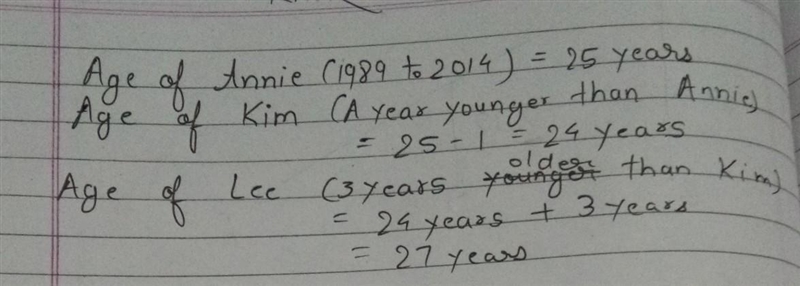 Age of Annie (1989 to 2014) = 25 years
Age of Kim (A year younger than Annie)
= 25 - 1 = 24 years
Age of Lee (3 years younger older than Kim)
= 24 years + 3 years
= 27 years